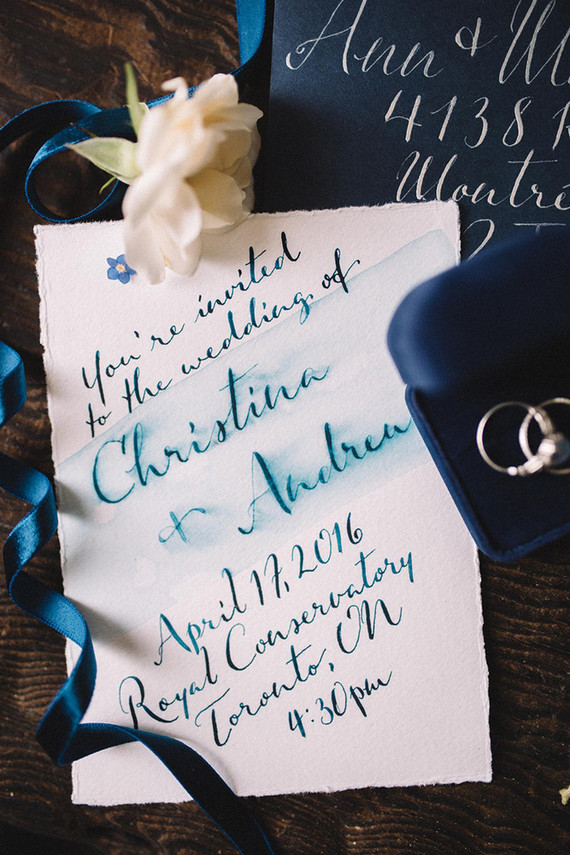 Ann &
4138
You're invited
to the wedding of
Christina
& Andrew
April 17, 2016
Royal Conservatory
Toronto, ON
4:30pm